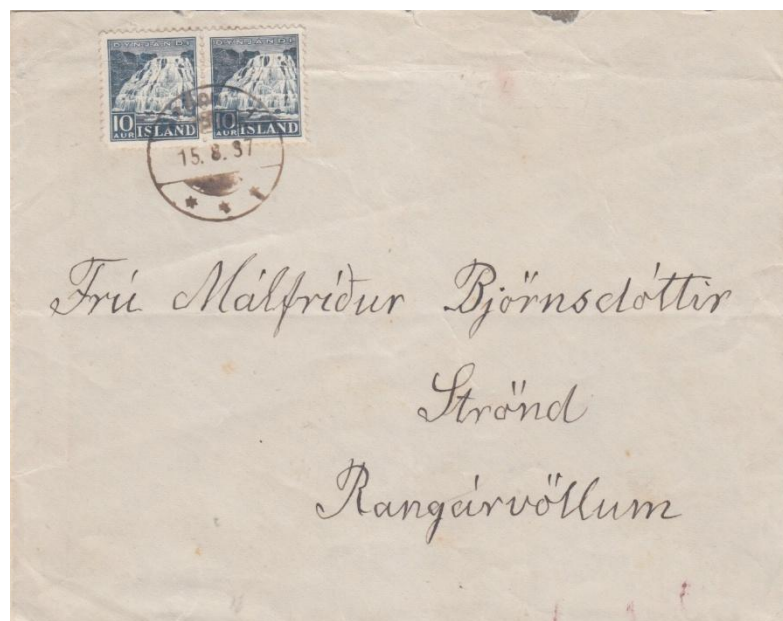 DYNJANDI DYNJANDI
10 AUR ÍSLAND 10 AUR ÍSLAND
15. 8. 37
Frú Málfríður Björnsdóttir
Strönd
Rangárvöllum